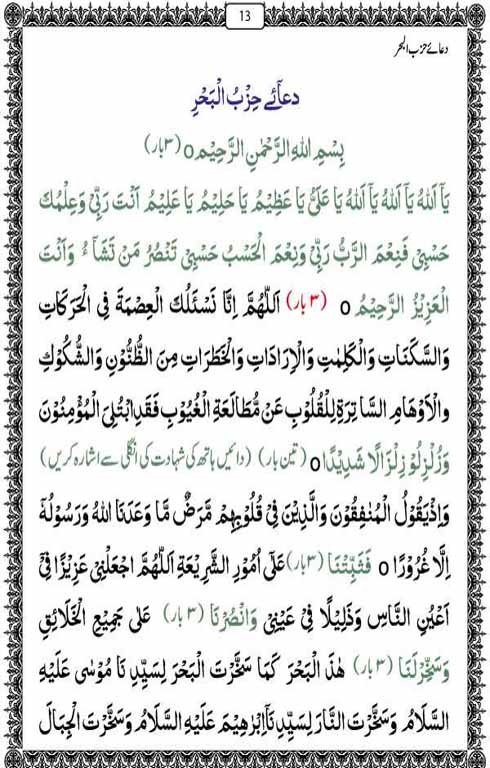 13
دعائے حزب البحر
دعائے حِزْبُ الْبَحْرِ
بِسْمِ اللهِ الرَّحْمٰنِ الرَّحِيْمِ o (۳ بار)
يَآ اَللهُ يَآ اَللهُ يَآ اَللهُ يَا عَلِىُّ يَا عَظِيْمُ يَا حَلِيْمُ يَا عَلِيْمُ اَنْتَ رَبِّىْ وَعِلْمُكَ
حَسْبِىْ فَنِعْمَ الرَّبُّ رَبِّىْ وَنِعْمَ الْحَسْبُ حَسْبِىْ تَنْصُرُ مَنْ تَشَآءُ وَاَنْتَ
الْعَزِيْزُ الرَّحِيْمُ o (۳ بار) اَللّٰهُمَّ اِنَّا نَسْئَلُكَ الْعِصْمَةَ فِى الْحَرَكَاتِ
وَالسَّكَنَاتِ وَالْكَلِمٰتِ وَالْاِرَادَاتِ وَالْخَطَرَاتِ مِنَ الظُّنُوْنِ وَالشُّكُوْكِ
وَالْاَوْهَامِ السَّاتِرَةِ لِلْقُلُوْبِ عَنْ مُّطَالَعَةِ الْغُيُوْبِ فَقَدِ ابْتُلِىَ الْمُؤْمِنُوْنَ
وَزُلْزِلُوْ زِلْزَالًا شَدِيْدًا o (تین بار) (دائیں ہاتھ کی شہادت کی انگلی سے اشارہ کریں)
وَاِذْيَقُوْلُ الْمُنٰفِقُوْنَ وَالَّذِيْنَ فِىْ قُلُوْبِهِمْ مَّرَضٌ مَّا وَعَدَنَا اللهُ وَرَسُوْلُهٗٓ
اِلَّا غُرُوْرًا o فَثَبِّتْنَا (۳ بار) عَلٰى اُمُوْرِ الشَّرِيْعَةِ اَللّٰهُمَّ اجْعَلْنِىْ عَزِيْزًا فِىْٓ
اَعْيُنِ النَّاسِ وَذَلِيْلًا فِىْ عَيْنِىْ وَانْصُرْنَا (۳ بار) عَلٰى جَمِيْعِ الْخَلَائِقِ
وَسَخِّرْلَنَا (۳ بار) هٰذَ الْبَحْرَ كَمَا سَخَّرْتَ الْبَحْرَ لِسَيِّدِ نَا مُوْسٰى عَلَيْهِ
السَّلَامُ وَسَخَّرْتَ النَّارَ لِسَيِّدِ نَآ اِبْرٰهِيْمَ عَلَيْهِ السَّلَامُ وَسَخَّرْتَ الْجِبَالَ